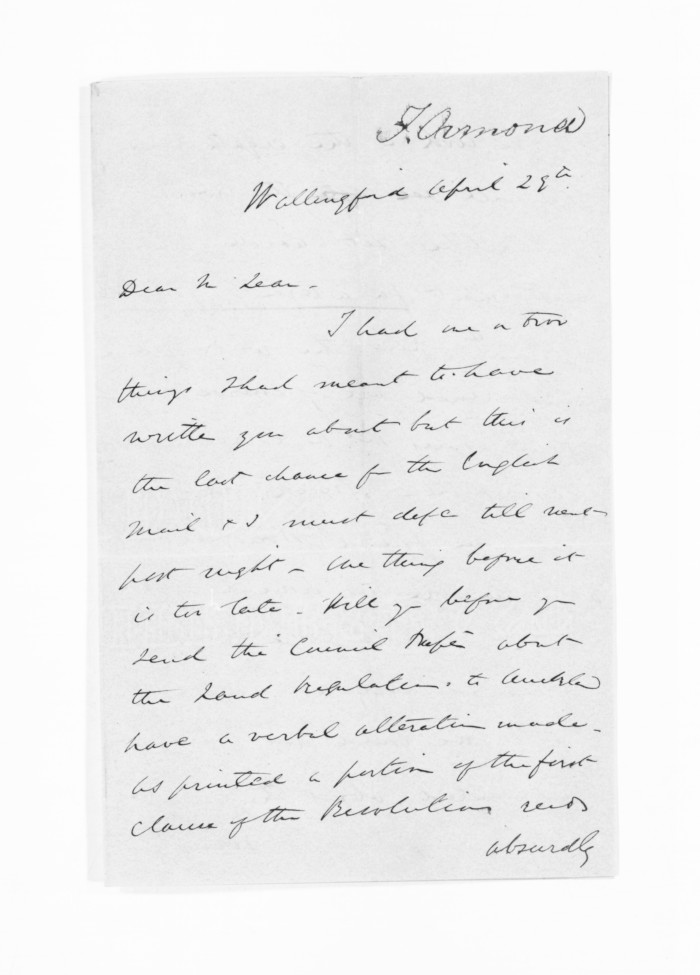 J. Ormond
Wallingford April 29th
Dear McLean.
I had one or two
things I had meant to have
written you about but this is
the last chance for the English
Mail & I must defer till next
post night - one thing before it
is too late. Will you before you
send the Council Papers about
the Land Regulations to Auckland
have a verbal alteration made -
as printed a portion of the first
clause of the Resolutions reads
absurdly